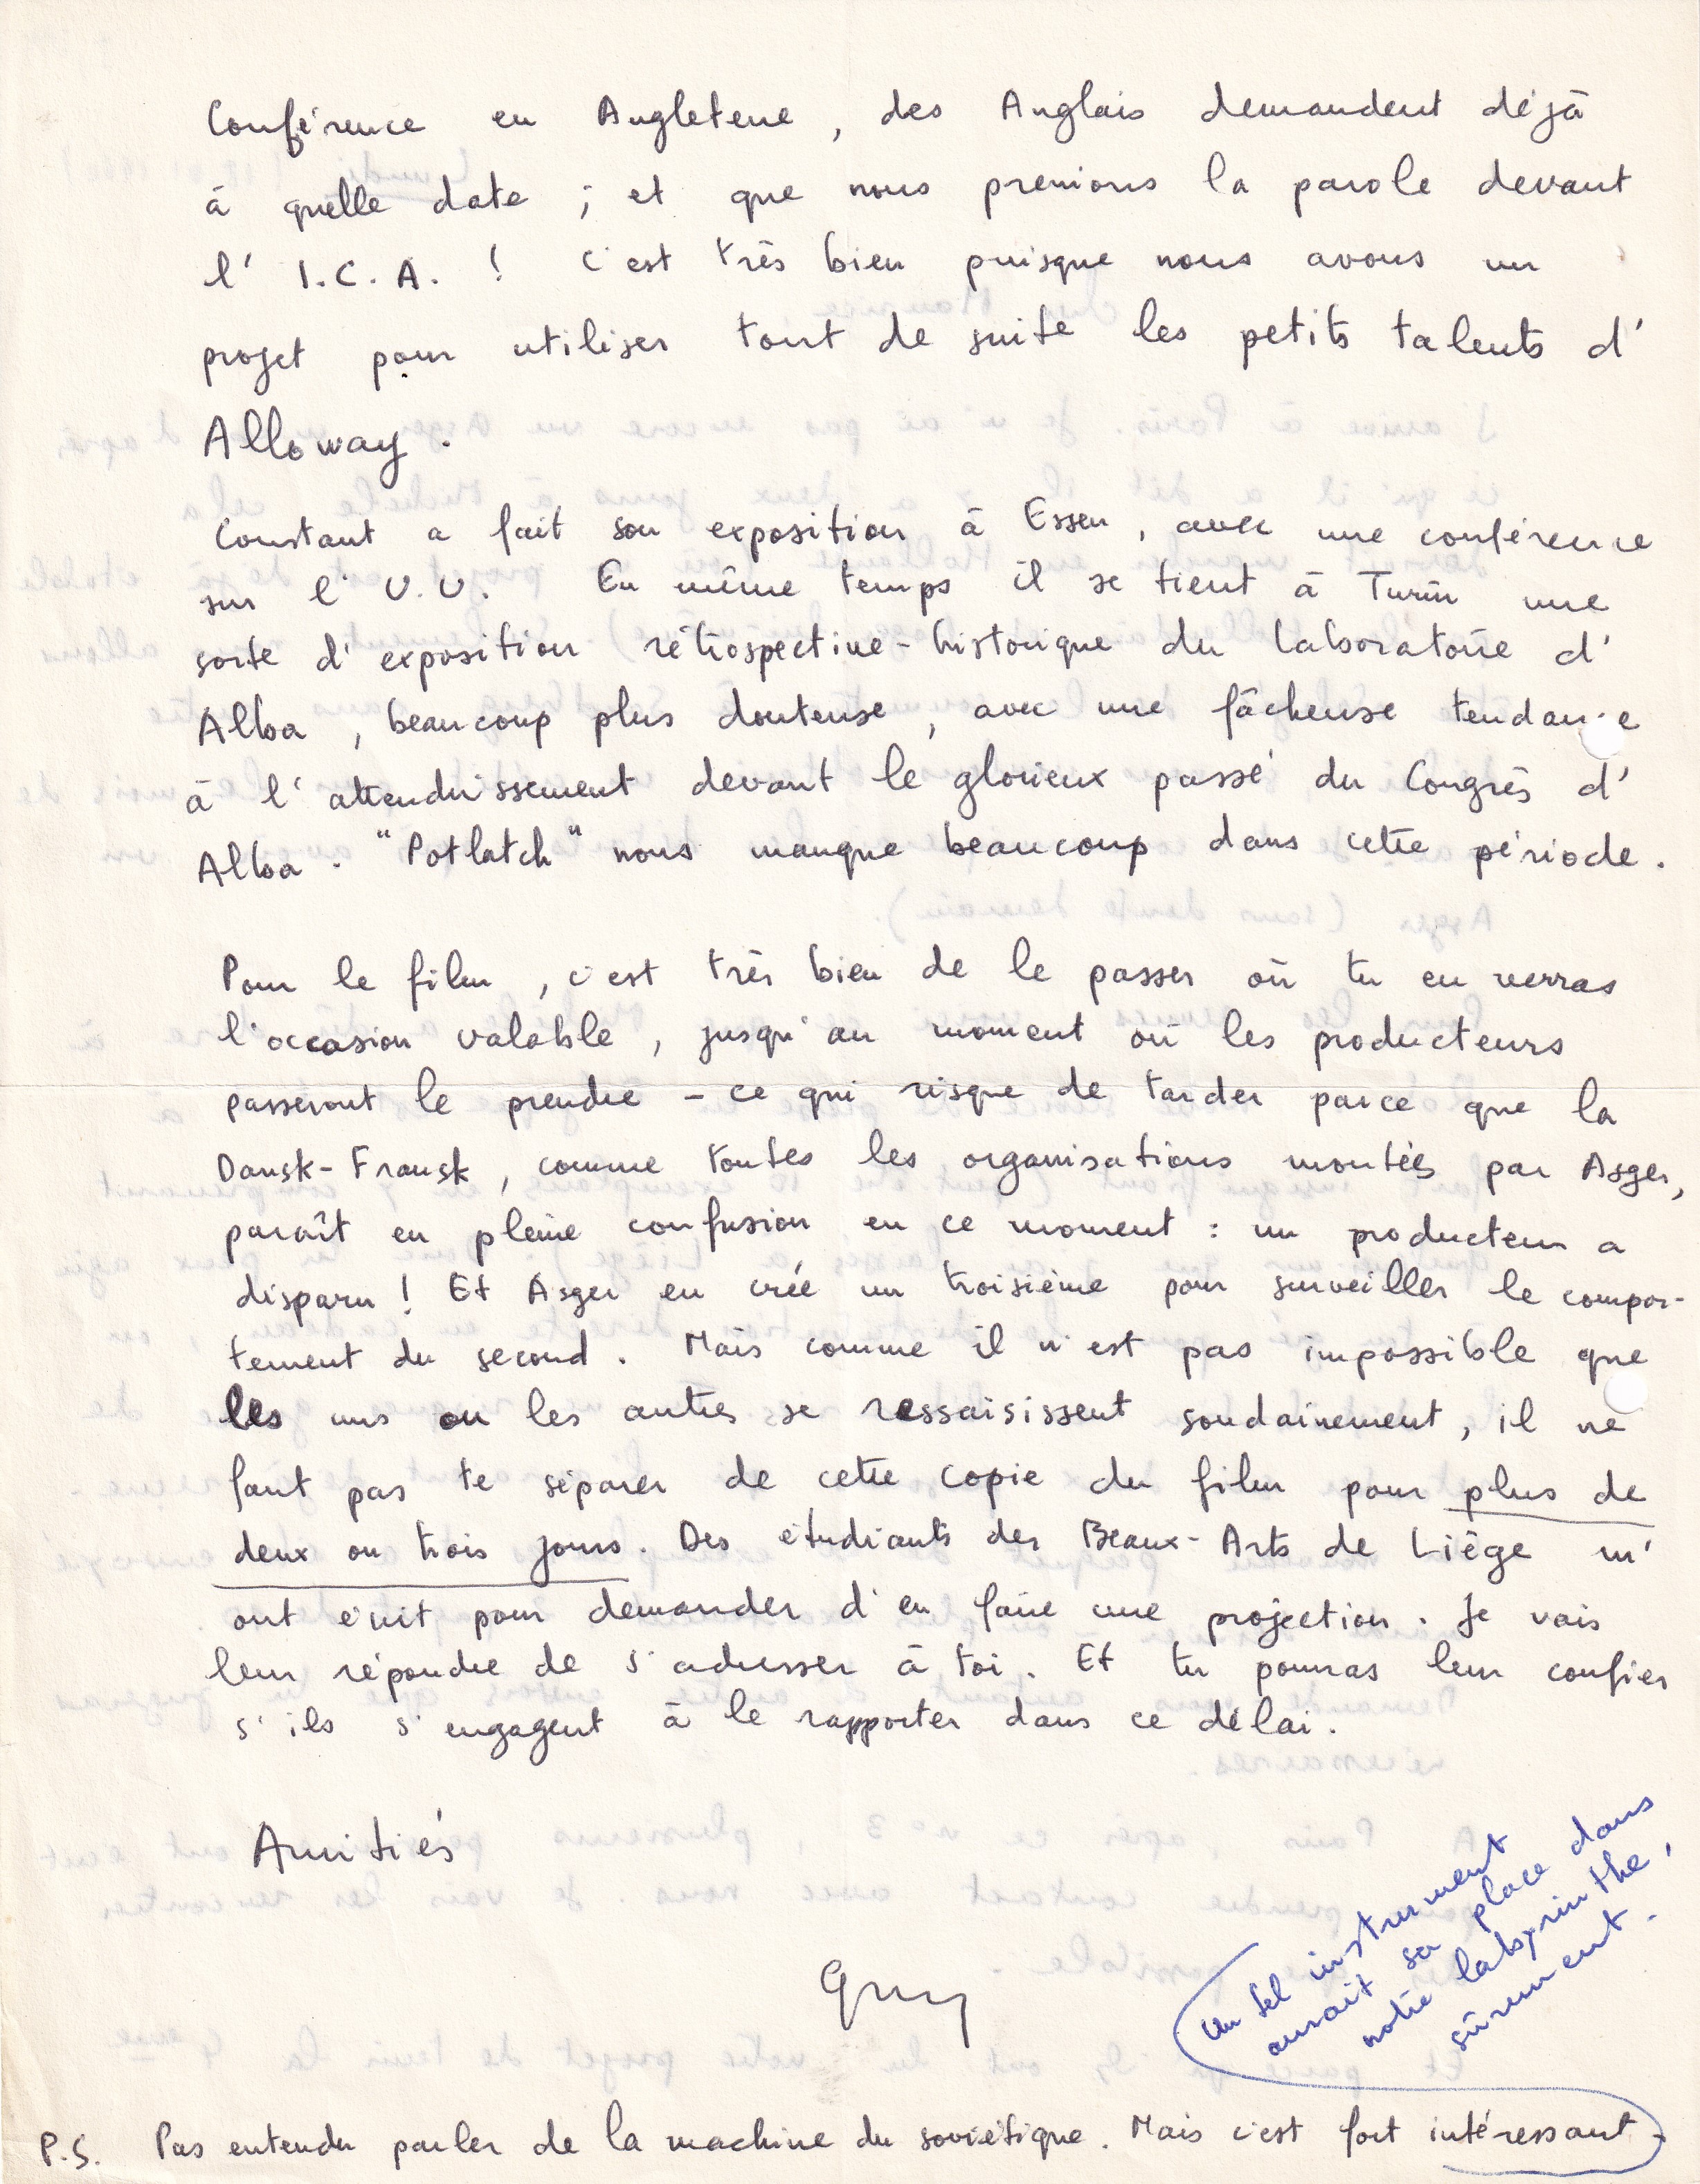 Conférence en Angleterre, des Anglais demandent déjà
à quelle date ; et que nous prenions la parole devant
l' I.C.A. ! C'est très bien puisque nous avons un
projet pour utiliser tout de suite les petits talents d'
Alloway.
Constant a fait son exposition à Essen, avec une conférence
sur l'U.U. En même temps il se tient à Turin une
sorte d'exposition rétrospective-historique du laboratoire d'
Alba, beaucoup plus douteuse, avec une fâcheuse tendance
à l'attendrissement devant le glorieux passé du Congrès d'
Alba. "Potlatch" nous manque beaucoup dans cette période.
Pour le film, c'est très bien de le passer où tu en verras
l'occasion valable, jusqu'au moment où les producteurs
passeront le prendre - ce qui risque de tarder parce que la
Dansk-Fransk, comme toutes les organisations montées par Asger,
paraît en pleine confusion en ce moment : un producteur a
disparu ! Et Asger en crée un troisième pour surveiller le compor-
tement du second. Mais comme il n'est pas impossible que
les uns ou les autres se ressaisissent soudainement, il ne
faut pas te séparer de cette copie du film pour plus de
deux ou trois jours. Des étudiants des Beaux-Arts de Liège m'
ont écrit pour demander d'en faire une projection. Je vais
leur répondre de s'adresser à toi. Et tu pourras leur confier
s'ils s'engagent à le rapporter dans ce délai.
Amitiés
Guy
Un tel instrument
aurait sa place dans
notre labyrinthe,
sûrement.
P.S. Pas entendu parler de la machine du soviétique. Mais c'est fort intéressant.